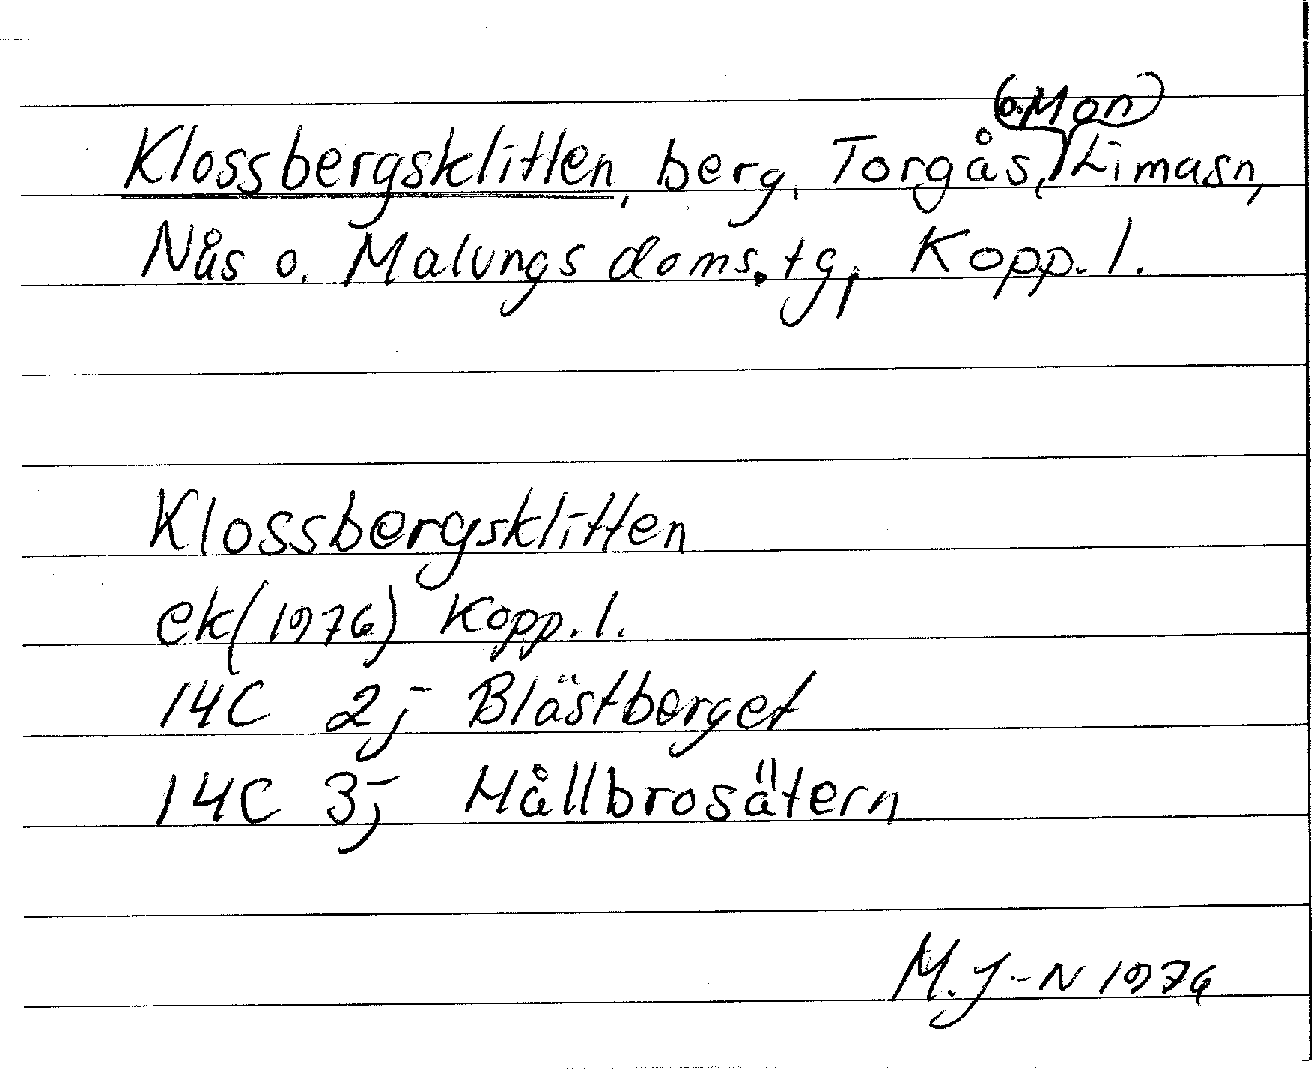 Klossbergsklitten, berg, Torgås, (o. Mon) Lima sn,
Nås o. Malungs doms. tg, Kopp. l.
Klossbergsklitten
ek (1976) Kopp. l.
14C 2j Blästberget
14C 3j Hållbrosätern
M. J-N 1976